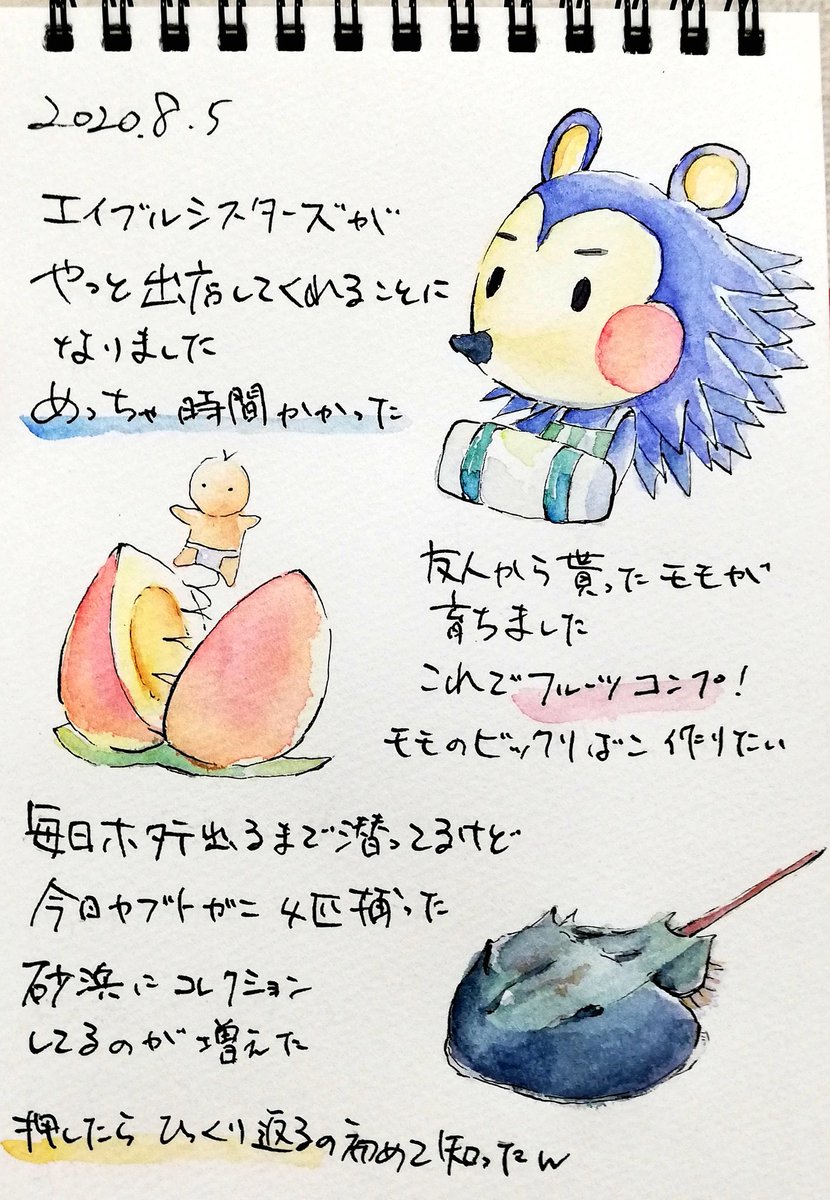 2020.8.5
エイブルシスターズが
やっと出店してくれることに
となりました
めっちゃ時間かかった
友人から貰ったモモが
育ちました
これでフルーツコンプ!
モモのビックリばこ作りたい
毎日ホタテ出るまで潜ってるけど
今日カブトガニ4匹捕った
砂浜にコレクション
してるのが増えた
押したらひっくり返るの初めて知ったん